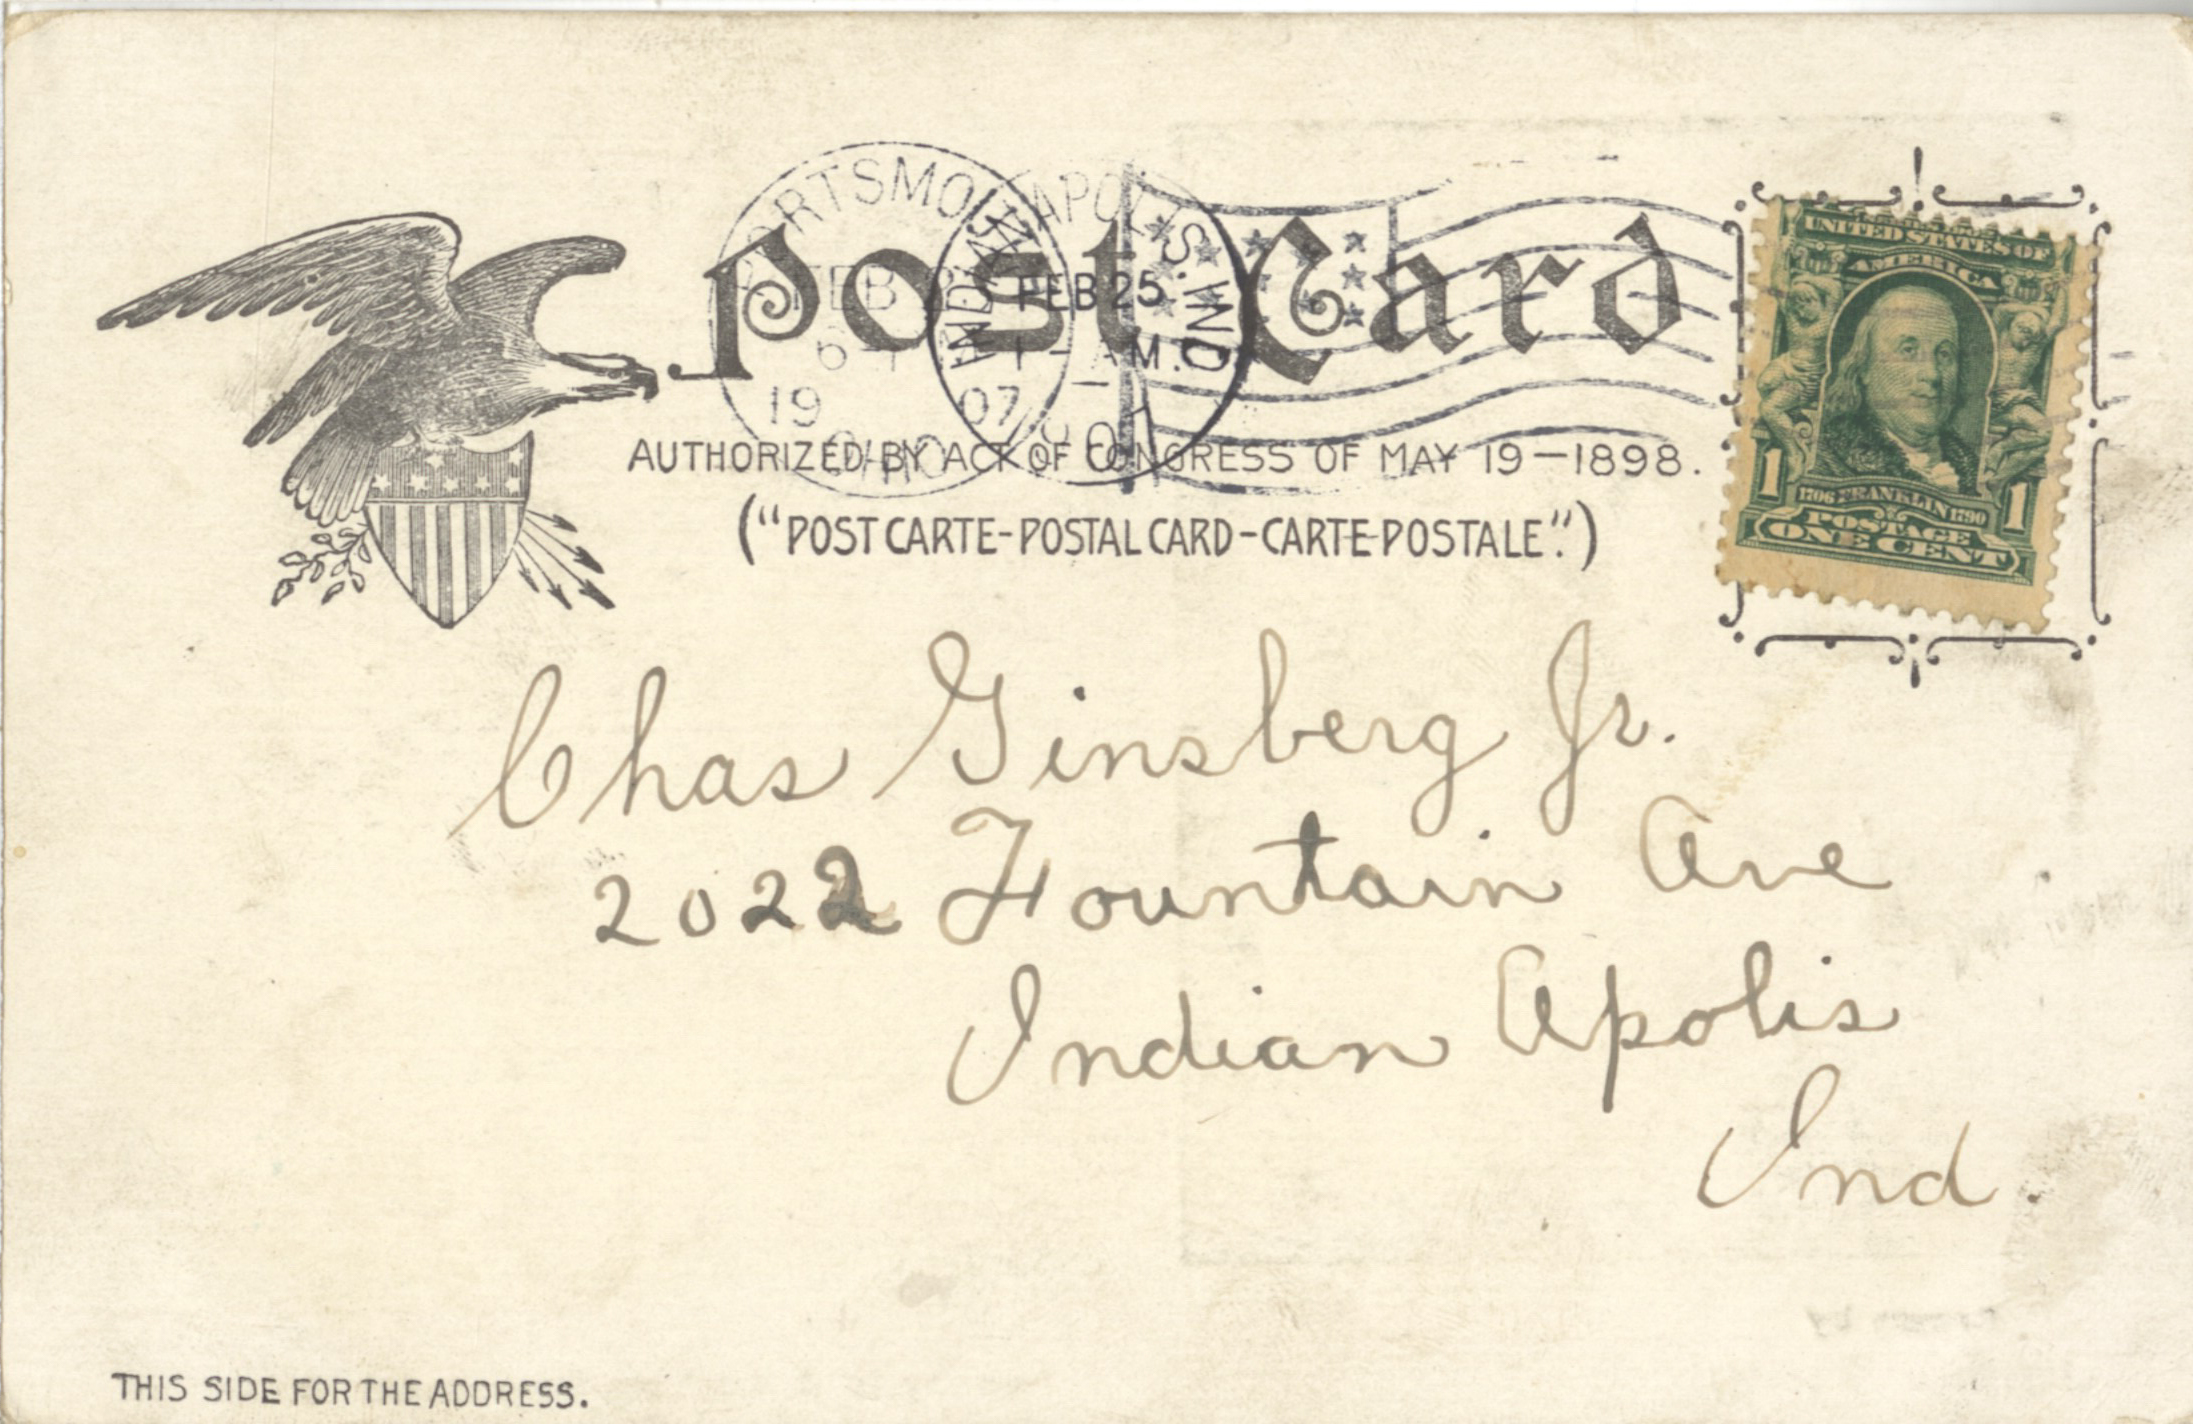 Post Card
PORTSMOUTH
OHIO
FEB
6
19 07
INDIANAPOLIS. IND.
FEB 25
1 - AM.
1907
AUTHORIZED BY ACT OF CONGRESS OF MAY 19-1898.
("POST CARTE-POSTAL CARD-CARTE-POSTALE".)
UNITED STATES OF
AMERICA
1 1
1706 FRANKLIN 1790
POSTAGE
ONE CENT
Chas Ginsberg Jr.
2022 Fountain Ave
Indian Apolis
Ind.
THIS SIDE FOR THE ADDRESS.